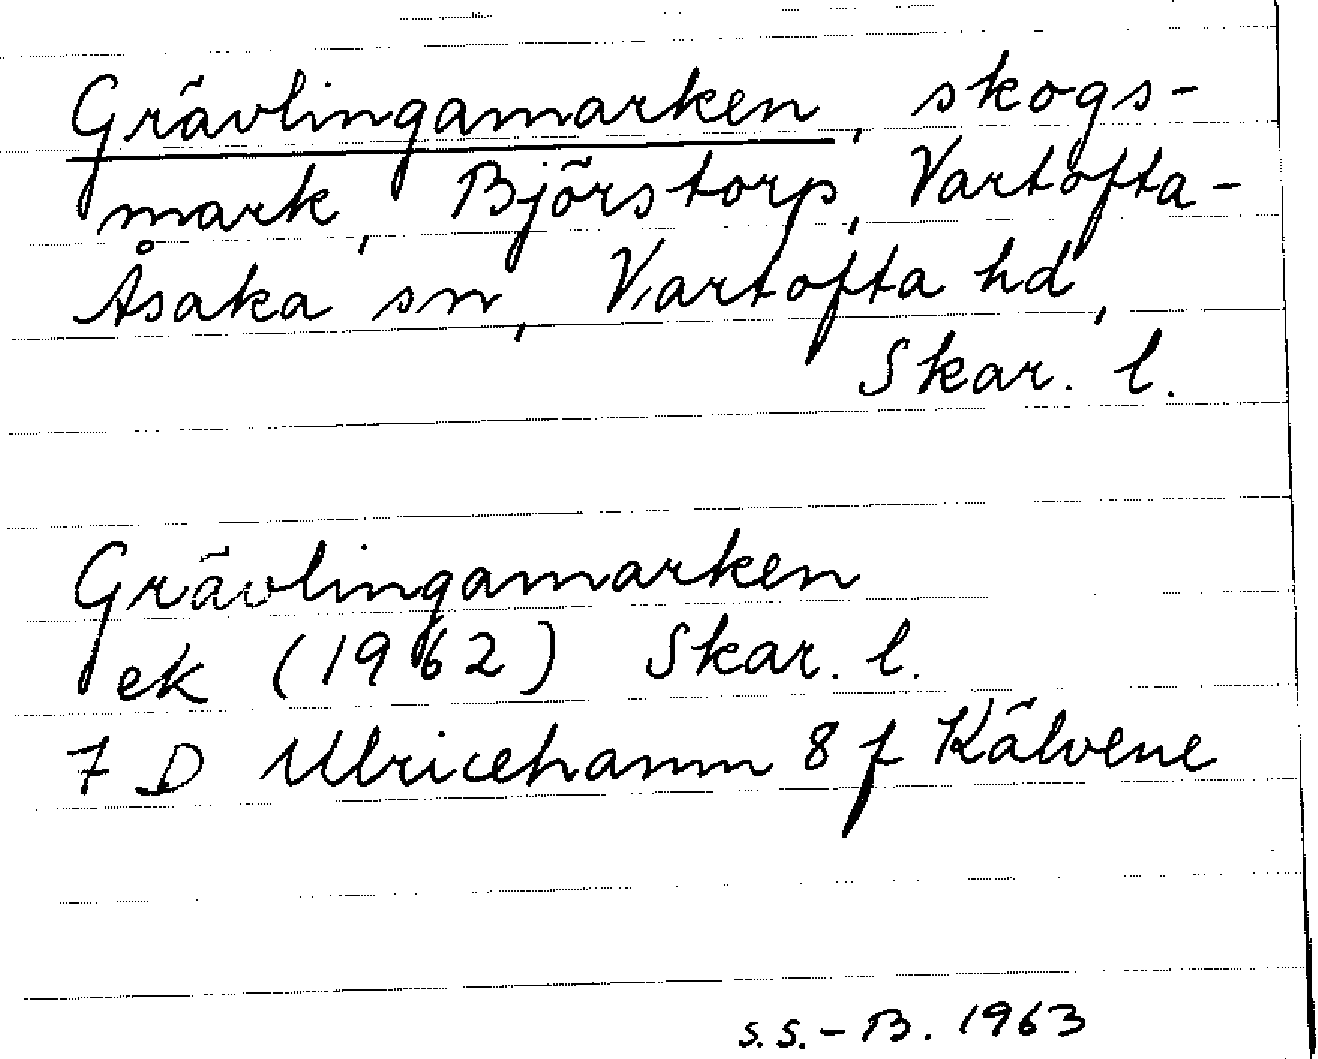 Grävlingamarken, skogs-
mark, Björstorp, Vartofta-
Åsaka sn, Vartofta hd,
Skar. l.
Grävlingamarken
ek (1962) Skar. l.
7 D Ulricehamn 8 f Kälvene
S.S.-B. 1963